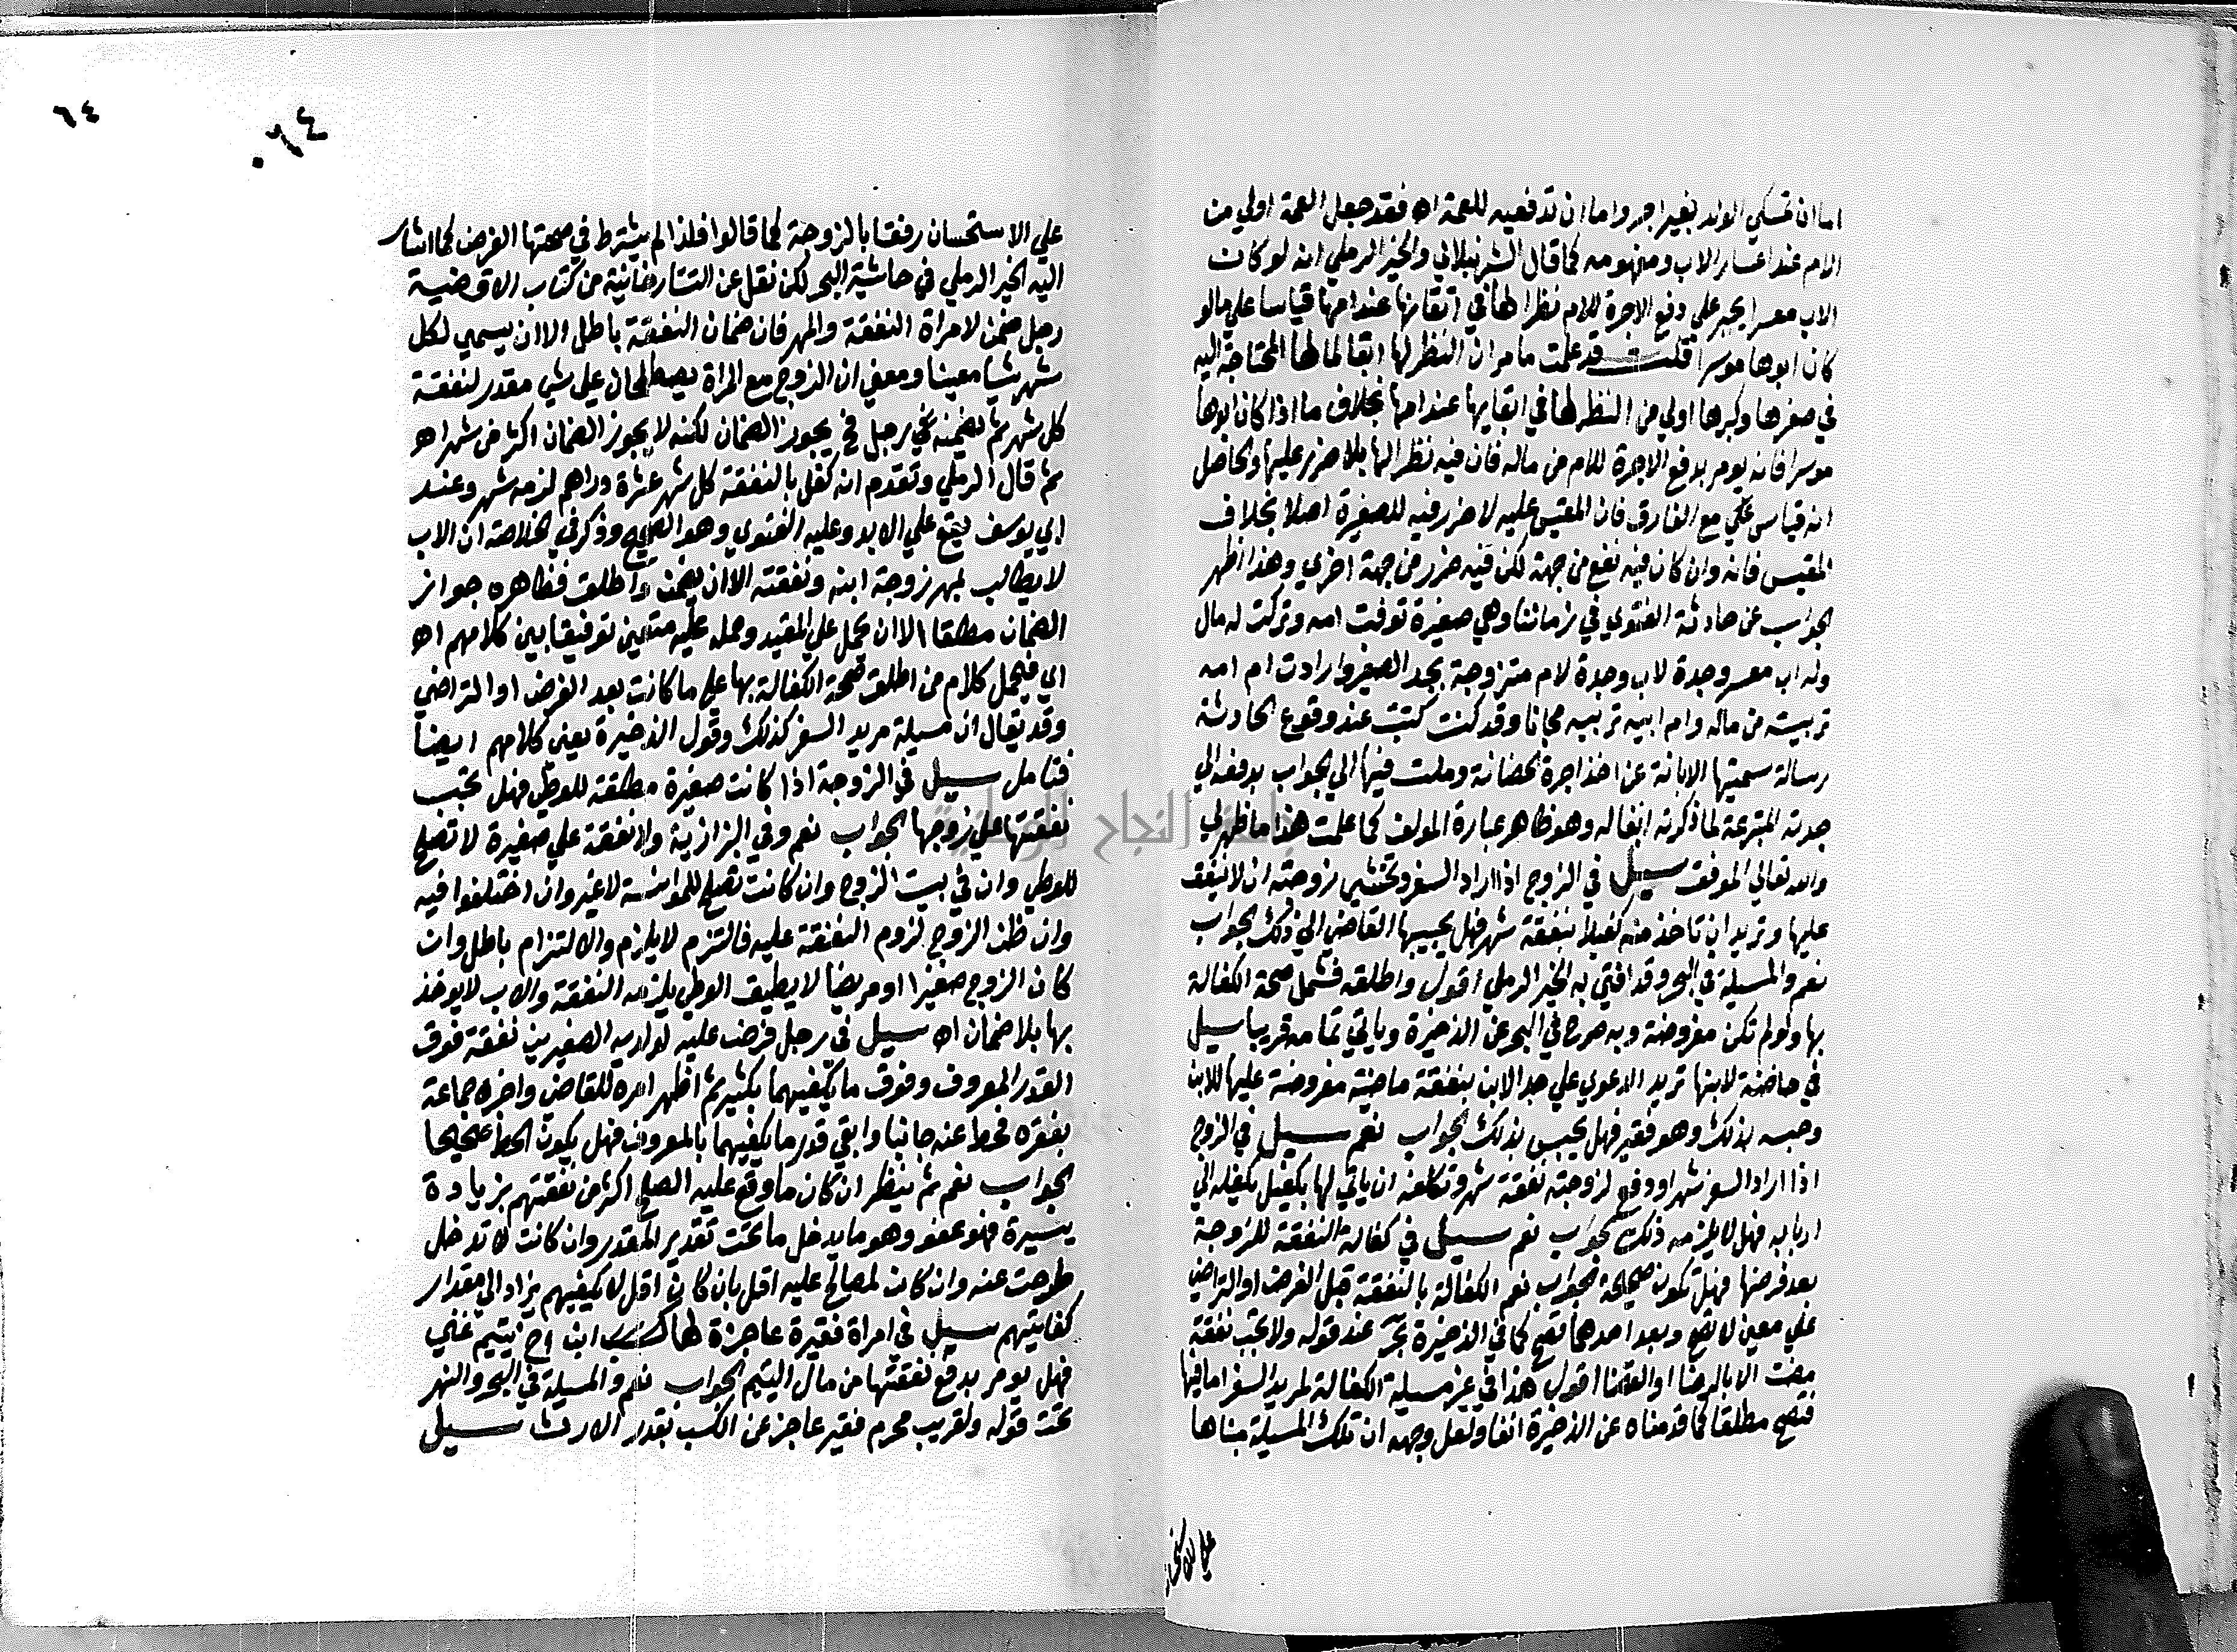 اما ان تمسكي الولد بغير اجر واما ان تدفعيه للعمة اه فقد جعل العمة اولي من
الام عند اعسار الاب ومفهومه كما قال الشرنبلالي والخير الرملي انه لو كان
الاب معسرا يجبر علي دفع الاجرة للام نظرا لها في ابقائها عند امها قياسا علي مالو
كان ابوها موسرا قلت قد علمت ما مر ان النظر لها ابقا لمالها المحتاجة اليه
في صغرها وكبرها اولي من النظر لها في ابقايها عند امها بخلاف ما اذا كان ابوها
موسرا فانه يومر بدفع الاجرة للام من ماله فان فيه نظرا لها بلا ضرر عليها والحاصل
انه قياس مع الفارق فان المقيس عليه لا ضرر فيه للصغيرة اصلا بخلاف
المقيس فانه وان كان فيه نفع من جهة لكن فيه ضرر من جهة اخري وهذا اظهر
الجواب عن حادثة الفتوي في زماننا وهي صغيرة توفت امه وتركت له مال
وله اب معسر وجدة لاب وجدة لام متزوجة بجد الصغير وارادت ام امه
تربيته من ماله وام ابيه تربيه مجانا وقد كنت كتبت عند وقوع الحادثة
رسالة سميتها الابانة عن اخذ اجرة الحضانة وملت فيها الي الجواب بدفعه الي
جدته المتبرعة لما ذكرته ابقا له وهو ظاهر عبارة المولف كما علمت هذا ما ظهر لي
والله تعالي الموفق سيل في الزوج اذا اراد السفر وتخشي زوجته ان لا ينفق
عليها وتريد ان تاخذ منه كفيلا بنفقة شهر فهل يجيبها القاضي الي ذلك الجواب
نعم والمسيلة في البحر وقد افتي به الخير الرملي اقول واطلقه فشمل صحة الكفالة
بها ولو لم تكن مفروضة وبه صرح في البحر عن الذخيرة وياتي تمامه قريبا سيل
في حاضنة لابنها تريد الدعوي علي جد الابن بنفقة ماضية مفروضة عليها للابن
وحبسه بذلك وهو فقير فهل يحبس بذلك الجواب نعم سيل في الزوج
اذا اراد السفر شهرا ودفع لزوجته نفقة شهر وتكلفه ان ياتي لها بكفيل يكفله الي
ايابه فهل لا يلزمه ذلك الجواب نعم سيل في كفالة النفقة للزوجة
بعد فرضها فهل تكون صحيحة الجواب نعم الكفالة بالنفقة قبل الفرض او التراضي
علي معين لا تصح وبعد احدهما تصح كما في الذخيرة بحر عند قوله ولا تجب نفقة
مضت الا بالرضا او القضا اقول هذا في غير مسيلة الكفالة لمريد السفر اما فيها
فتصح مطلقا كما قدمناه عن الذخيرة انفا ولعل وجهه ان تلك المسيلة مبناها
علي الاستحسان
٦٤
٠٦٤
علي الاستحسان رفقا بالزوجة كما قالوا فلذا لم يشترط في صحتها الفرض كما اشار
اليه الخير الرملي في حاشية البحر لكن نقل عن التتارخانية من كتاب الاقضية
رجل ضمن لامراة النفقة والمهر فان ضمان النفقة باطل الا ان يسمي لكل
شهر شيا معينا ومعني ان الزوج مع المراة يصطلحان علي شي مقدر لنفقة
كل شهر ثم يضمنه رجل فح يجوز الضمان لكنه لا يجوز الضمان اكثر من شهر اه
ثم قال الرملي وتقدم انه كفل بالنفقة كل شهر عشرة دراهم لزمه شهر وعند
ابي يوسف يقع علي الابد وعليه الفتوي وهو الصحيح وذكر في الخلاصة ان الاب
لا يطالب بمهر زوجة ابنه ونفقته الا ان يضمن واطلق فظاهره جواز
الضمان مطلقا الا ان يحمل علي المقيد وحمله عليه متعين توفيقا بين كلامهم اه
اي فيحمل كلام من اطلق صحة الكفالة بها علي ما كانت بعد الفرض او التراضي
وقد يقال ان مسيلة مريد السفر كذلك وقول الذخيرة يعني كلامهم ايضا
فتامل سيل في الزوجة اذا كانت صغيرة مطيقة للوطي فهل تجب
نفقتها علي زوجها الجواب نعم وفي البزازية ولا نفقة علي صغيرة لا تصلح
للوطي وان في بيت الزوج وان كانت تصلح للموانسة لا غير وان اختلفوا فيه
وان ظن الزوج لزوم النفقة عليه فالتزم لا يلزم والالتزام باطل وان
كان الزوج صغيرا او مريضا لا يطيق الوطي يلزمه النفقة والاب لا يوخذ
بها بلا ضمان اه سيل في رجل فرض عليه لولديه الصغيرين نفقة فوق
القدر المعروف وفوق ما يكفيهما بكثير ثم اظهر امره للقاضي واخبره جماعة
بفقره فحط عنه جانبا وابقي قدر ما يكفيهما بالمعروف فهل يكون الحط صحيحا
الجواب نعم ثم ينظر ان كان ما وقع عليه الصلح اكثر من نفقتهم بزيادة
يسيرة فهو عفو وهو ما يدخل ما تحت تقدير المقدر وان كانت لا تدخل
طرحت عنه وان كان المصالح عليه اقل بان كان اقل لا يكفيهم يزاد الي مقدار
كفايتهم سيل في امراة فقيرة عاجزة لها ابن اخ يتيم غني
فهل يومر بدفع نفقتها من مال اليتيم الجواب نعم والمسيلة في البحر والنهر
تحت قوله ولقريب محرم فقير عاجز عن الكسب بقدر الارث سيل
جامعة النجاح الوطنية